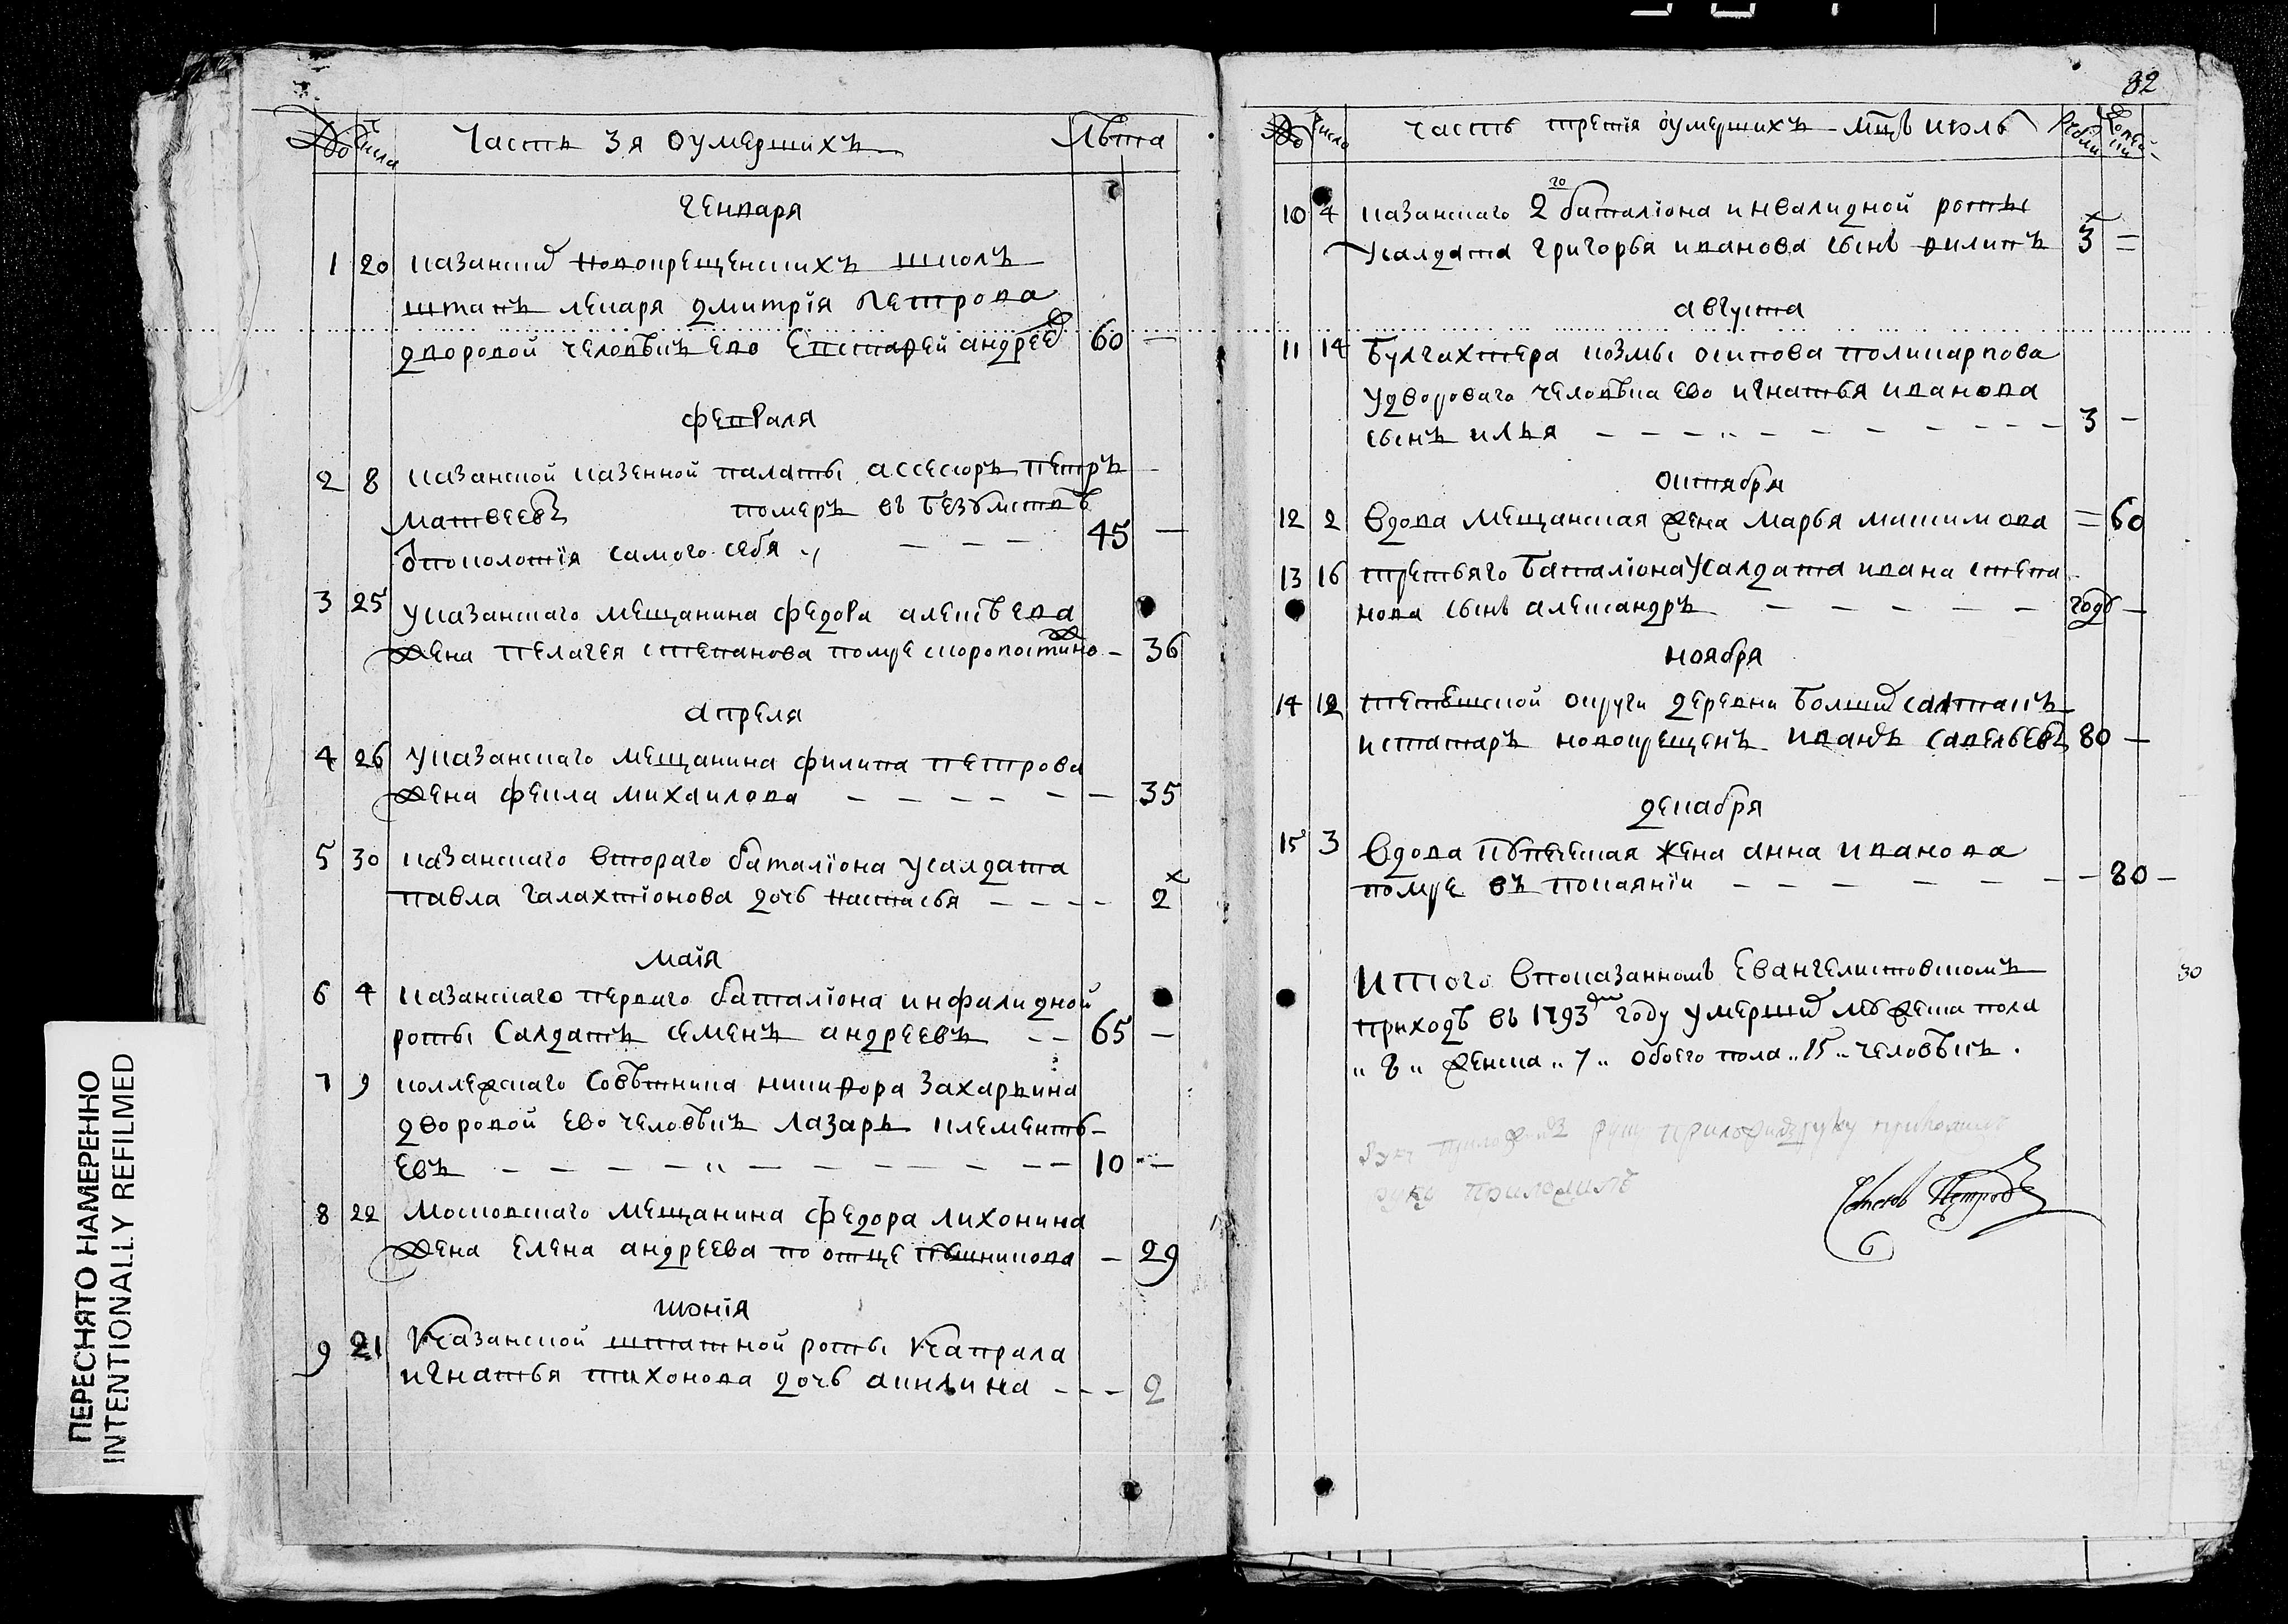 82
№ Числа Часть 3я оумершихъ Лѣта
генваря
1 20 казанских новокрещенскихъ школъ
штапъ лекаря дмитрія петрова
дворовой человѣкъ ево Евстафей андреев 60 —
февраля
2 8 казанской казенной палаты ассесоръ петръ
матвеевъ померъ въ безумствѣ
45 —
самого себя
3 25 Указанскаго мещанина федора алексѣева
жена пелагея степанова помре скоропостижно — 36
апреля
4 26 Указанскаго мещанина филипа петрова
жена фекла михаилова — — — — — — 35
5 30 казанскаго втораго баталіона усалдата
павла галахтіонова дочь настасья — — — — 2
маія
6 4 казанскаго перваго баталіона инфалидной
роты Салдатъ семенъ андреевъ — — 65 —
7 9 коллежскаго совѣтника никифора захарьина
дворовой ево человѣкъ лазарь клементь-
евъ — — — — „ — — — — — — — 10 —
8 22 Московскаго мещанина федора лихонина
жена елена андреева по отце пѣшникова — 29
июнія
9 21 Казанской штатной роты Капрала
игнатья тихонова дочь акилина — — — 2
№ Число часть третія оумершихъ — мцъ июль Рубли Копейки
10 4 казанскаго 2го баталіона инвалидной роты
Усалдата григорья иванова сынъ филипъ 3 =
августа
11 14 Булгахтера козмы осипова поликарпова
Удвороваго человѣка ево игнатья иванова
сынъ илья — — — „ — — — — — — — 3 —
октября
12 2 Вдова мещанская жена марья макимова = 60
13 16 третьяго баталіона Усалдата ивана степа-
нова сынъ александръ — — — — — — годъ —
ноября
14 12 округи деревни болших салтанъ
истатаръ новокрещенъ иванъ савельевъ 80 —
декабря
15 3 Вдова жена анна иванова
помре въ покаяніи — — — — — — — 80 —
Итого впоказанномъ Евангелистовскомъ
приходѣ въ 1793м году умерших мужеска пола
„ 8 „ женска „ 7 „ обоего пола „ 15 „ человѣкъ .
30
руку приложилъ
Петровъ
ПЕРЕСНЯТО НАМЕРЕННО
INTENTIONALLY REFILMED